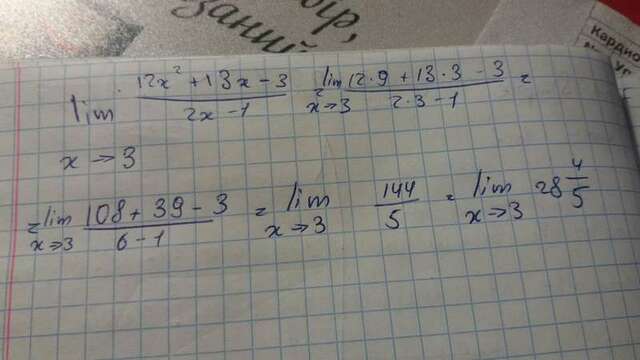 ыр,
заний
Кардио
lim (12x² + 13x - 3)/(2x - 1) = lim x→3 (12·9 + 13·3 - 3)/(2·3 - 1) =
x → 3
= lim x→3 (108 + 39 - 3)/(6 - 1) = lim x→3 144/5 = lim x→3 28 4/5